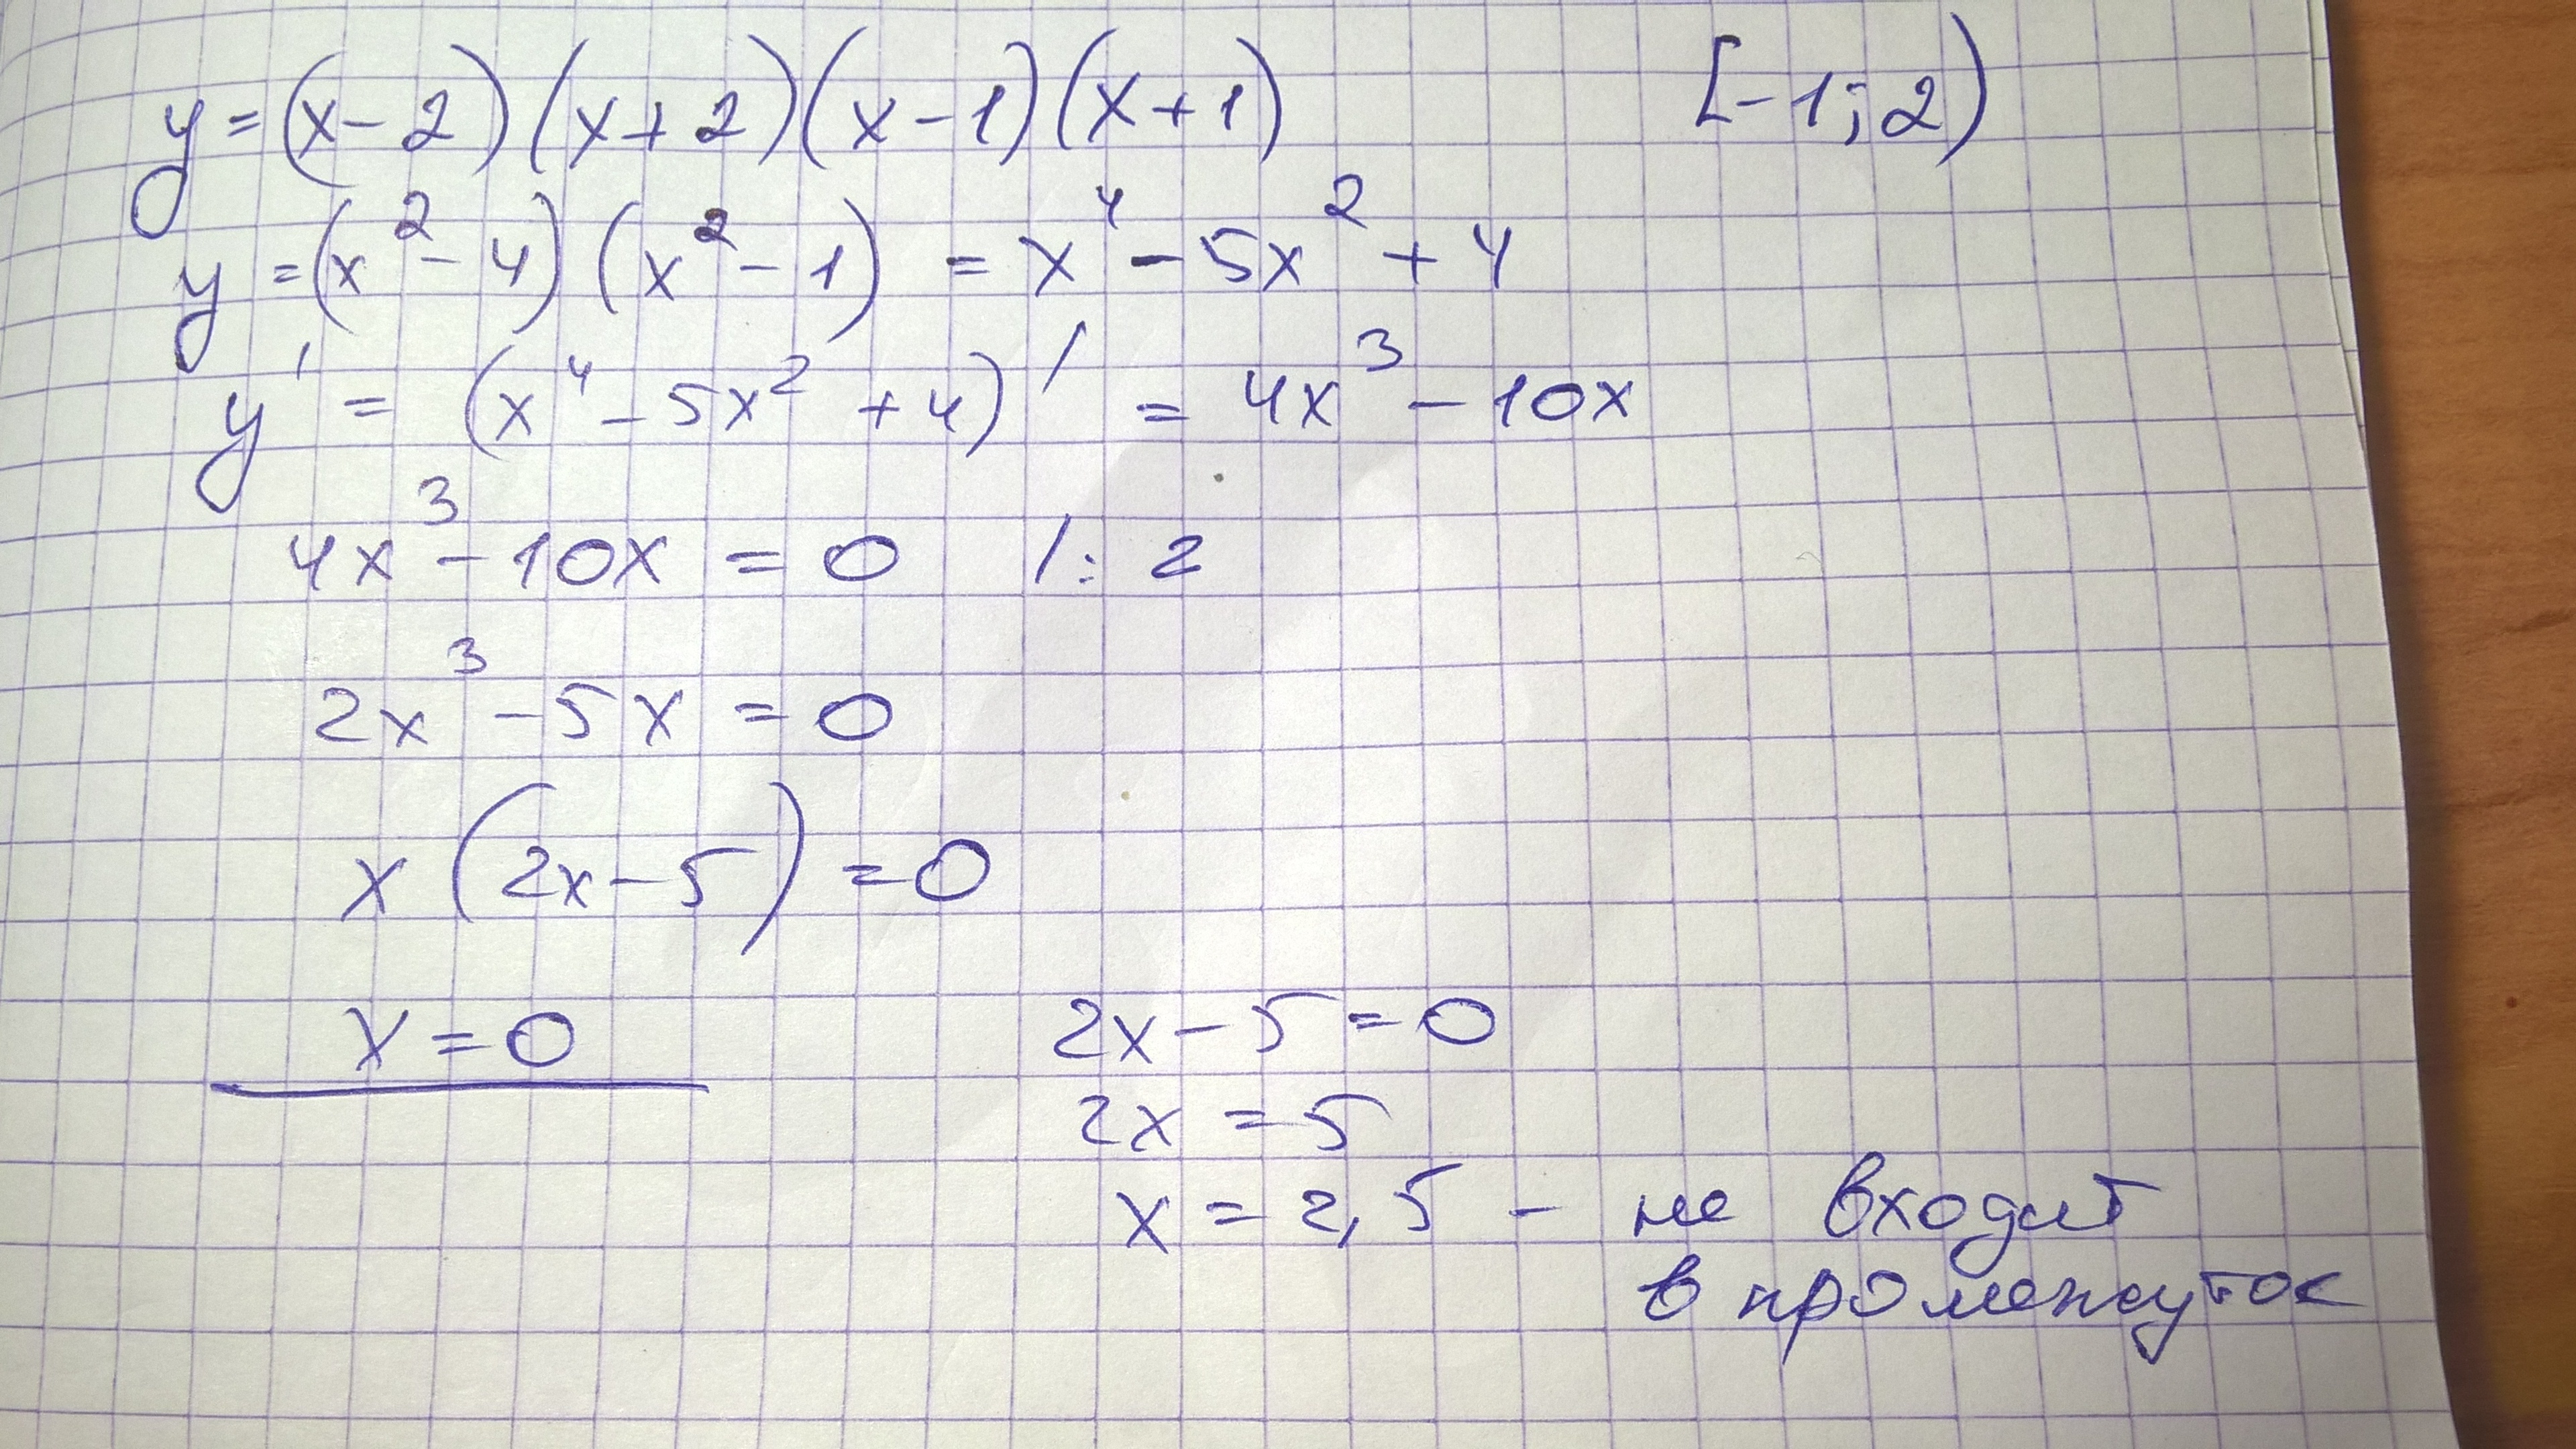 y = (x - 2)(x + 2)(x - 1)(x + 1) [-1; 2)
y = (x² - 4)(x² - 1) = x⁴ - 5x² + 4
y' = (x⁴ - 5x² + 4)' = 4x³ - 10x
4x³ - 10x = 0 /: 2
2x³ - 5x = 0
x(2x - 5) = 0
x = 0 2x - 5 = 0
2x = 5
x = 2,5 - не входит
в промежуток